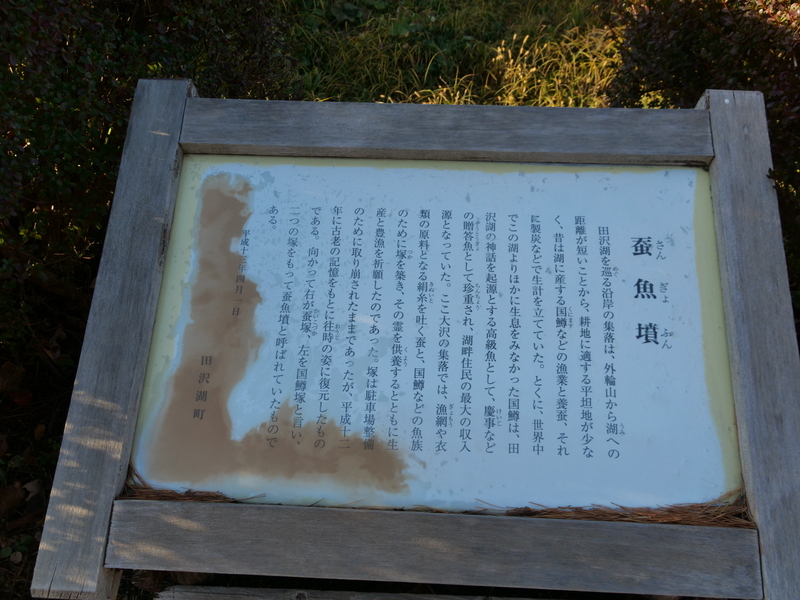 蚕魚墳
さんぎょふん
田沢湖を巡る沿岸の集落は、外輪山から湖への
距離が短いことから、耕地に適する平坦地が少な
く、昔は湖に産する国鱒などの漁業と養蚕、それ
に製炭などで生計を立てていた。とくに、世界中
でこの湖よりほかに生息をみなかった国鱒は、田
沢湖の神話を起源とする高級魚として、慶事など
の贈答魚として珍重され、湖畔住民の最大の収入
源となっていた。ここ大沢の集落では、漁網や衣
類の原料となる絹糸を吐く蚕と、国鱒などの魚族
のために塚を築き、その霊を供養するとともに生
産と豊漁を祈願したのであった。塚は駐車場整備
のために取り崩されたままであったが、平成十二
年に古老の記憶をもとに往時の姿に復元したもの
である。向かって右が蚕塚、左を国鱒塚と言い、
二つの塚をもって蚕魚墳と呼ばれていたもので
ある。
平成十三年四月一日
田沢湖町